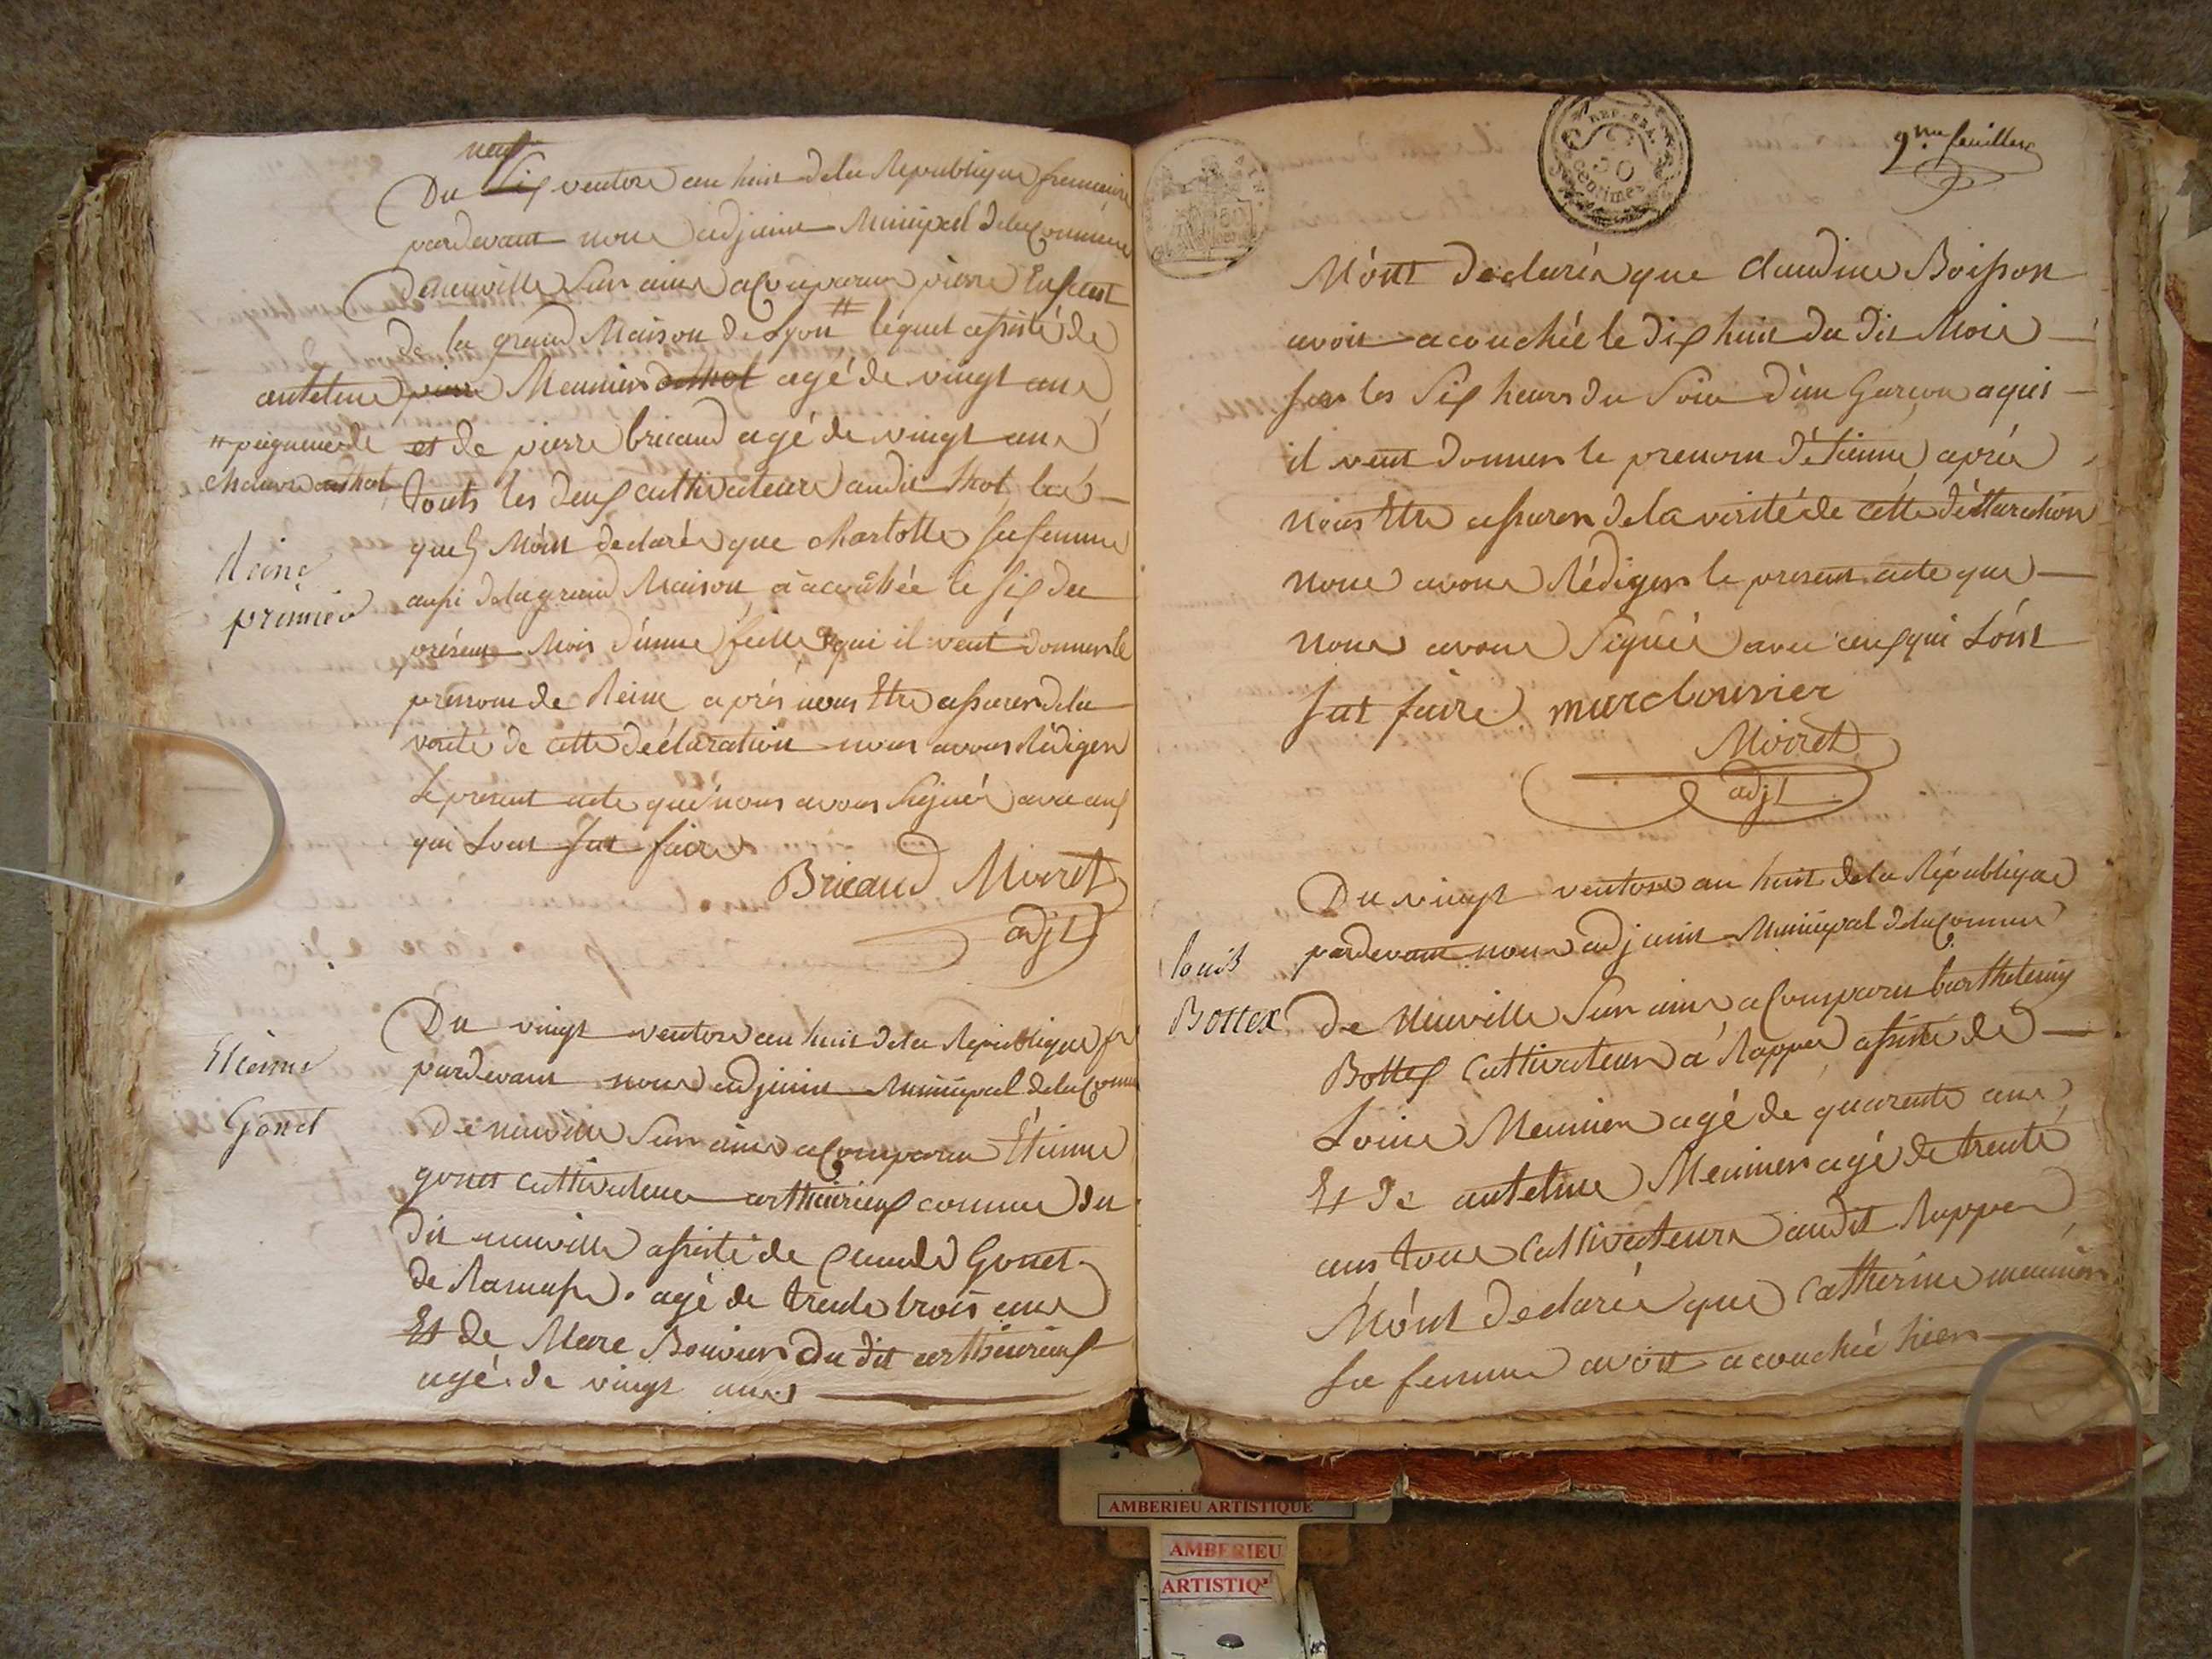 neuf
Du Six ventose an huit de la Republique francaise
pardevant nous adjoint Municipal de la Commune
De neuville Sur ains a Comparu pierre Enfant
de la grand Maison de Lyon # lequel assisté de
antelme pierre Meunier dethol agé de vingt ans
# peigneur de
chanvre
et de pierre bricaud agé de vingt ans
touts les deux cultivateurs audit thol les
quels M'ont declarés que charlotte sa femme
Reine
première
aussi de la grand Maison à acouchée le six du
présent Mois d'unne fille a qui il veut donner le
prenom de Reine après nous Etre assurer de la
verité de cette declaration nous avons Rédiger
Le present acte que nous avons Signés avec eux
qui L'ont Sut faire
Bricaud Moiret
adjt
Du vingt ventose an huit de la Republique fr
Etienne
Gonet
pardevant nous adjoint Municipal de la Comm
De neuville Sur ains a Comparu Étienne
gonet cultivateur arthuirieux commune du
dit neuville assisté de Claude Gonet
de Ramasse agé de trente trois ans
Et de Marc Bouvier du dit arthuirieux
agé de vingt ans
9me feuillet
REP. FRA.
50
Centimes
M'ont declarés que claudine Boisson
avoit acouchée le dix huit du dit Mois
sur les Six heures du Soir d'un Garçon aquis
il veut donner le prenom d'étienne après
nous Etre assurer de la verité de cette déctaration
nous avons Rédiger le present acte que
nous avons Signés avec ceux qui L'ont
Sut faire marc bouvier
Moiret
adjt
Du vingt ventose an huit de la République
pardevant nous adjoint Municipal de la Commune
louis
Bottex
De Neuville Sur ains a Comparu barthelemy
Bottex Cultivateur à Rappes assisté de
Louis Meunier agé de quarente ans
Et de antelme Meunier agé de trente
ans tous Cultivateurs audit Rappes
M'ont declarés que Catherine meunier
sa femme avoit acouchée hier
AMBERIEU ARTISTIQUE
AMBERIEU
ARTISTIQ